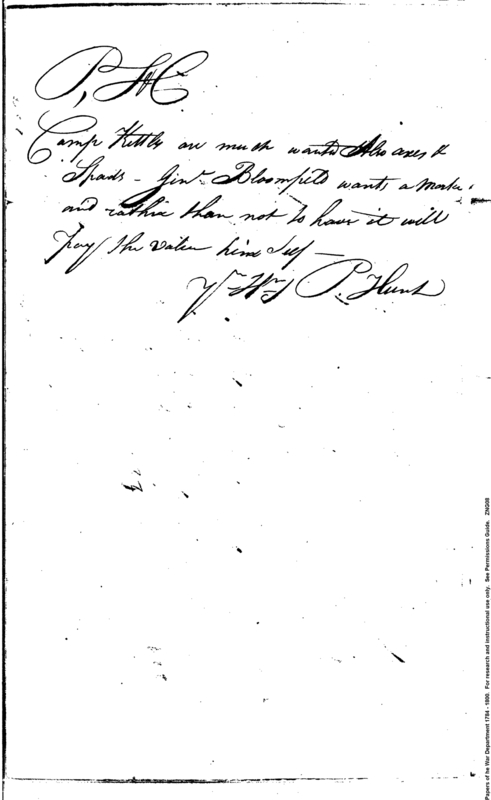 P, S
Camp Kittles are much wanted Also axes &
Spads - Ginl. Bloomfield wants a
and rathir than not to have it will
pay the value him Self —
P. Hunt
Papers of he War Department 1784 - 1800. For research and instructional use only. See Permissions Guide. ZNG08